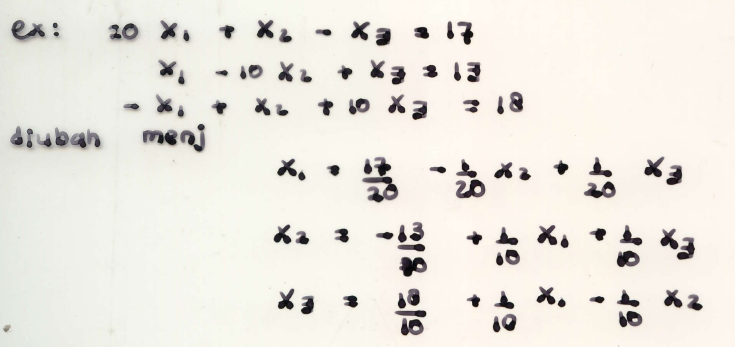 ex: 20 X₁ + X₂ - X₃ = 17
X₁ - 10 X₂ + X₃ = 13
- X₁ + X₂ + 10 X₃ = 18
diubah menj
X₁ = 17/20 - 1/20 X₂ + 1/20 X₃
X₂ = - 13/10 + 1/10 X₁ + 1/10 X₃
X₃ = 18/10 + 1/10 X₁ - 1/10 X₂